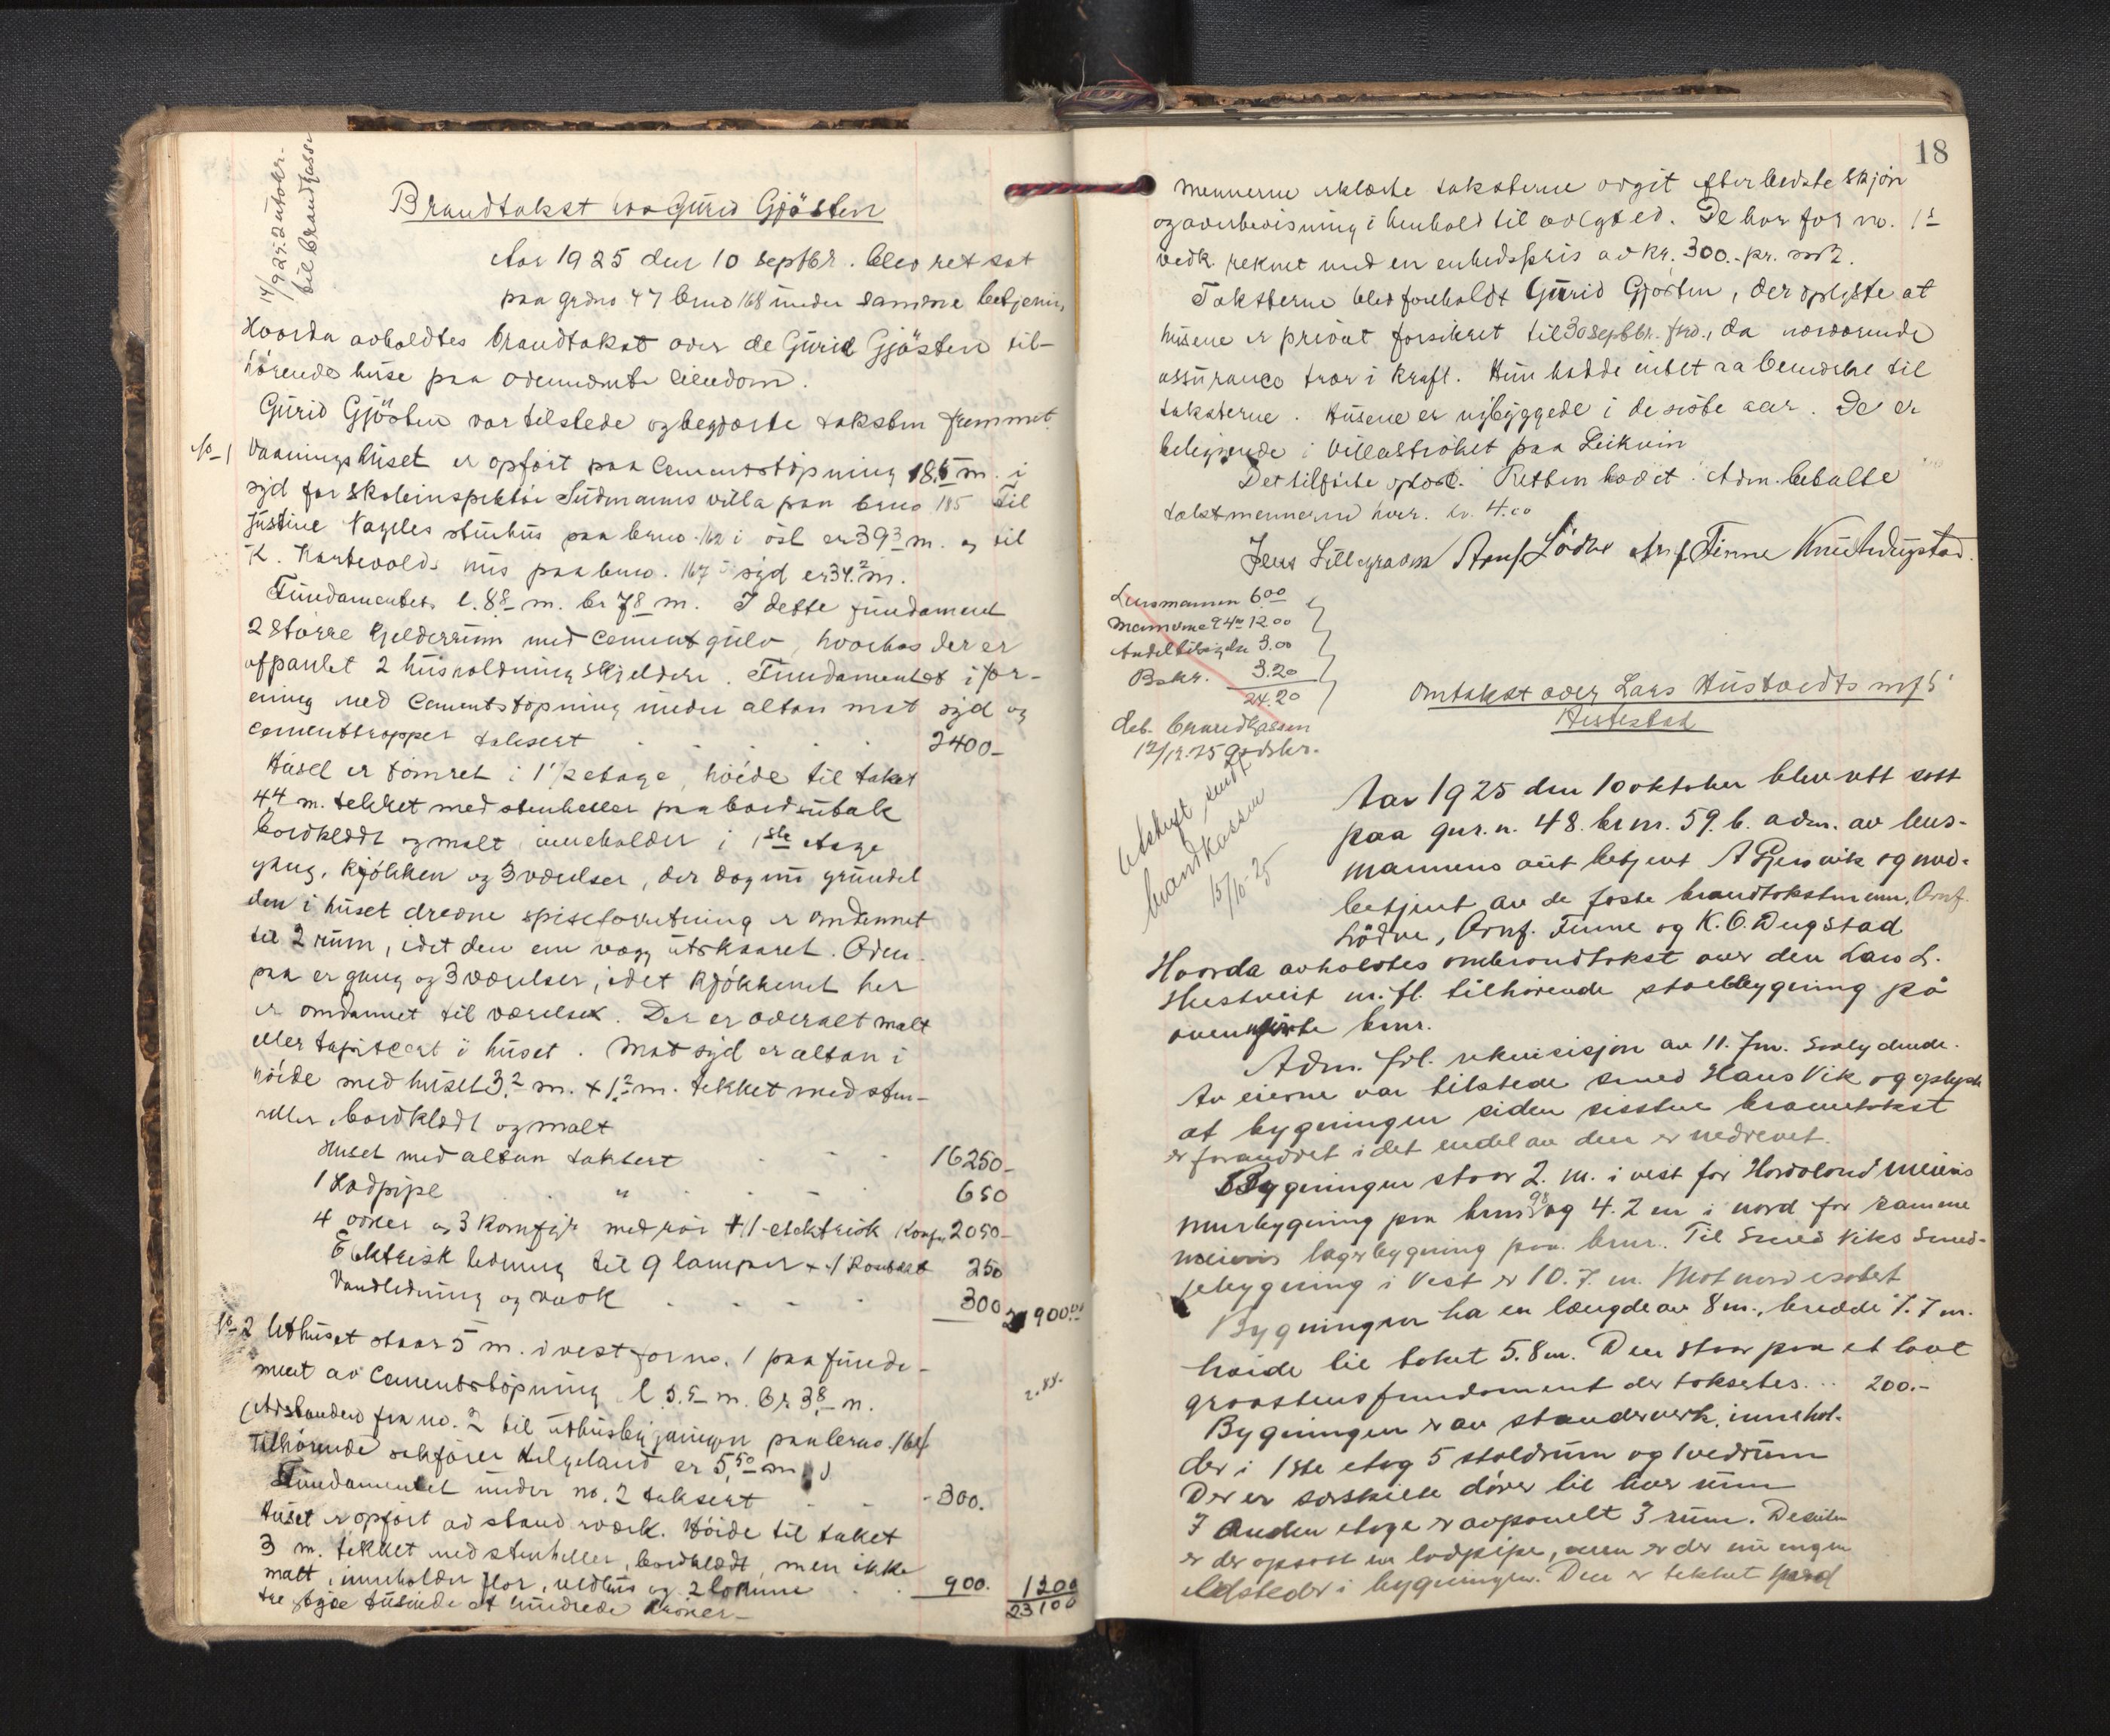 Brandtakst hos Gurid Gjösten
14/9 25. 2 utskr.
til brandkassen
Aar 1925 den 10 septbr. blev ret sat
paa grdno 47 brno 168 under samme betjening
Hvorda avholdtes brandtakst over de Gurid Gjösten til-
hörende huse paa ovennævnte eiendom.
Gurid Gjösten var tilstede og begjærte taksten fremmet.
No 1 Vaaningshuset er opfört paa Cementstöpning 18.5 m. i
syd for Skoleinspektör Sudmanns villa paa brno 185 Til
Justine Nageles stuehus paa brno. 162 i öst er 39.3 m. og til
K. Kartevolds hus paa brno. 167 i syd er 34.2 m.
Fundamentets l. 8.8 m. br 7.8 m. I dette fundament
2 större kjelderrum med cementgulv, hvorhos der er
afpanlet 2 husholdningskjeldere. Fundamentet i for-
ening med Cementstöpning under altan mot syd og
cementtrapper taksert 2400-
Huset er tömret i 1 1/2 etage, höide til taket
4.4 m. tekket med stenheller paa bordsutak
bordklædt og malt, inneholder i 1ste etage
gang, kjökken og 3 værelser, der dog nu grundet
den i huset drevne spiseforretning er omdannet
til 2 rum, idet den ene væg utskaaret. Oven-
paa er gang og 3 værelser, idet kjökkenet her
er omdannet til værelse. Der er overalt malt
eller tapitsert i huset. Mot syd er altan i
höide med huset 3.2 m. + 1.2 m. tekket med sten-
heller, bordklædt og malt
Huset med altan taksert 16250-
1 Lodpipe " 650
4 ovner og 3 komfyr med rör + 1 elektrisk Komfyr 2050-
Elektrisk ledning til 9 lamper + 1 250
Vandledning og vask 300 21900.00
No 2 Uthuset staar 5 m. i vest for no. 1 paa funda-
ment av Cementstöpning l. 5.5 m. br 3.8 m.
(Avstanden fra no. 2 til uthusbygningen paa brno. 164
tilhörende Helgeland er 5.50 m)
Fundamentet under no. 2 taksert 300.
Huset er opfört av standværk. Höide til taket
3 m. tekket med stenheller, bordklædt, men ikke
malt, inneholder flor, vedhus og 2 lorum 900. 1200
tre og tyve tusinde et hundrede kroner- 23100
18
Mennerne erklærte taksterne avgit efter bedste skjön
og overbevisning i henhold til avlagt ed. De har for no. 1s
vedk. reknet med en enhedspris av kr. 300.- pr. m2.
Taksterne blev foreholdt Gurid Gjösten, der oplyste at
husene er privat forsikret til 30 septbr. fmd., da nærværende
assurance trær i kraft. Hun hadde intet aa bemerke til
taksterne. Husene er nybyggede i de siste aar. De er
beliggende i Villaströket paa Leikvin
Det tilförte oplæst. Retten hævet. Adm. betalte
takstmennerne hver. kr. 4.00
Jens Lillegraven Arnf Lödve Arnf. Finne Knut Dugstad.
Lensmannen 6.00
Mennerne 9 4.00 12.00
3.00
Bokr. 3.20
24.20
deb. brandkassen
12/12.25
Omtakst over Lars Hustvedts m fl
Hestestal
Utskrift sendt
brandkassen
15/10-25
Aar 1925 den 10 oktober blev rett satt
paa gnr. n. 48. br nr. 59. b. adm. av lens-
mannens aut betjent A Gjersvik og med-
betjent av de faste brandtakstmenn, Arnf.
Lödve, Arnf. Finne og K. O. Dugstad
Hvorda avholdtes ombrandtakst over den Lars L.
Hustveit m. fl. tilhörende stallbygning på
ovennævnte brnr.
Adm. frl. rekvisisjon av 11. f.m. saalydende.
Av eierne var tilstede smed Hans Vik og oplyste
at bygningen siden sisste branntakst
er forandret idet endel av den er nedrevet.
Bygningen staar 2. m. i vest for Hordaland meieris
murbygning paa brnr 98 og 4.2 m i nord for samme
meieris lagerbygning paa. brnr. Til Smed Viks Smed-
jebygning i Vest er 10.7. m. Mot nord isolert
Bygningen ha en længde av 8 m., bredde 7.7 m.
höide til taket 5.8 m. Den staar paa et lavt
graastensfundament der taksertes. 200.-
Bygningen er av standerverk, innehol-
der i 1ste etag 5 stoldrum og 1 vedrum
Der er særskilte dörer til hver rum
I anden etage er avpanelt 3 rum. Desuten
er der opsatt en lodpipe, men er der nu ingen
ildsteder i bygningen. Den er tekket med